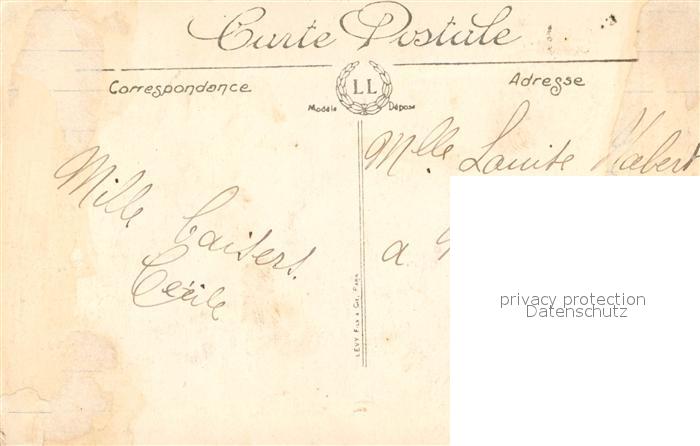 Carte Postale
Correspondance
LL
Adresse
Modèle Déposé
Mlle Louise Habert
Mille
baisers.
Cécile
a
LÉVY Fils & Cie, Paris
privacy protection
Datenschutz